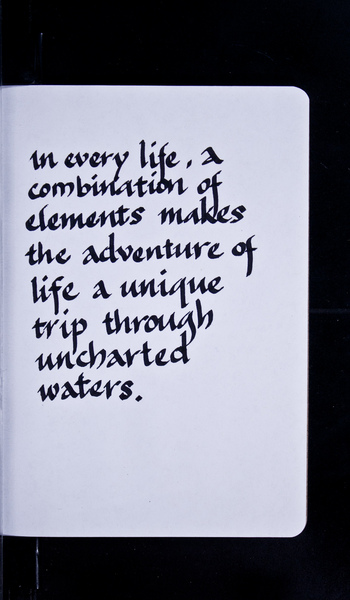 in every life, a
combination of
elements makes
the adventure of
life a unique
trip through
uncharted
waters.